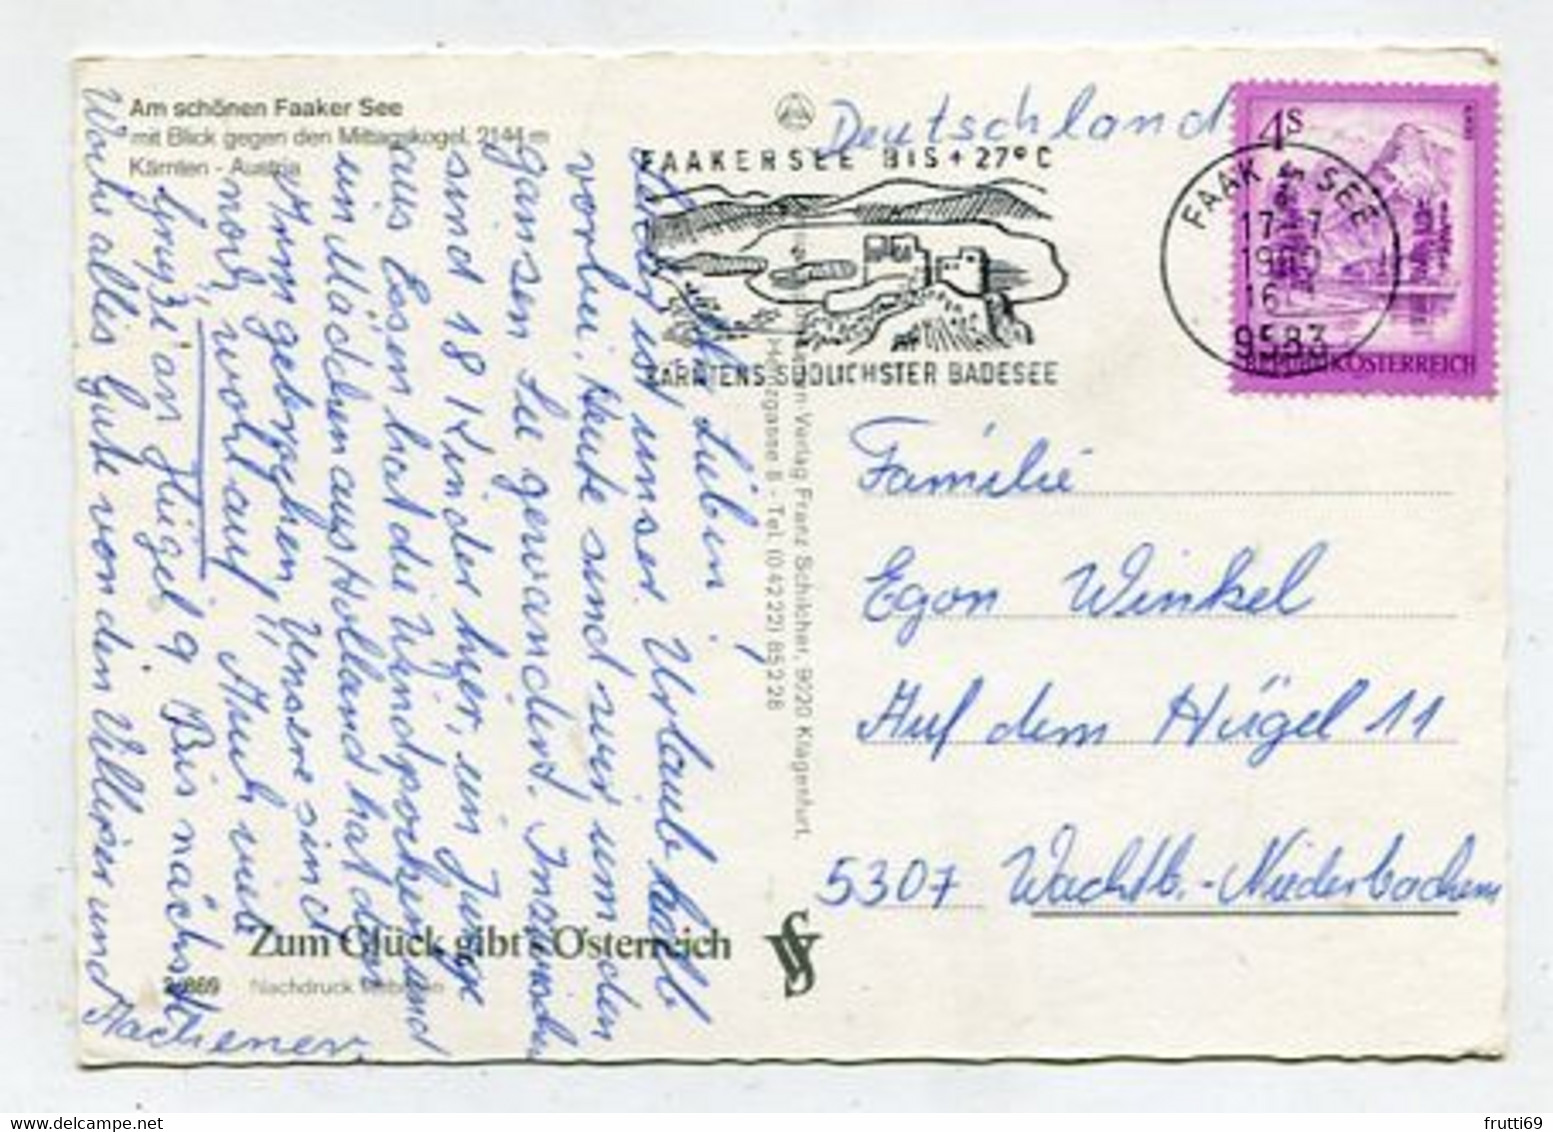 Am schönen Faaker See
mit Blick gegen den Mittagskogel, 2144 m
Kärnten - Austria
Deutschland
FAAKERSEE BIS + 27°C
KÄRNTENS SÜDLICHSTER BADESEE
4S
REPUBLIK ÖSTERREICH
FAAK SEE
17.-7
1980
16
9583
Familie
Egon Winkel
Auf dem Hügel 11
5307 Wachtb.-Niederbachem
Verlag Franz Schilcher, 9020 Klagenfurt,
8 - Tel. (0 42 22) 85 2 28
Ihr Lieben,
Leider ist unser Urlaub halb
vorbei. Heute sind wir um den
ganzen See gewandert. Inzwischen
sind 18 Kinder hier, ein Junge
aus Essen hat die Windpocken und
ein Mädchen aus Holland hat den
Arm gebrochen. Unsere sind
noch "wohl auf". Auch viele
Grüße an Hügel 9 Bis nächste
Woche alles Gute von den Villiper und
Aachener
Zum Glück gibt's Österreich
869 Nachdruck verboten
frutti69